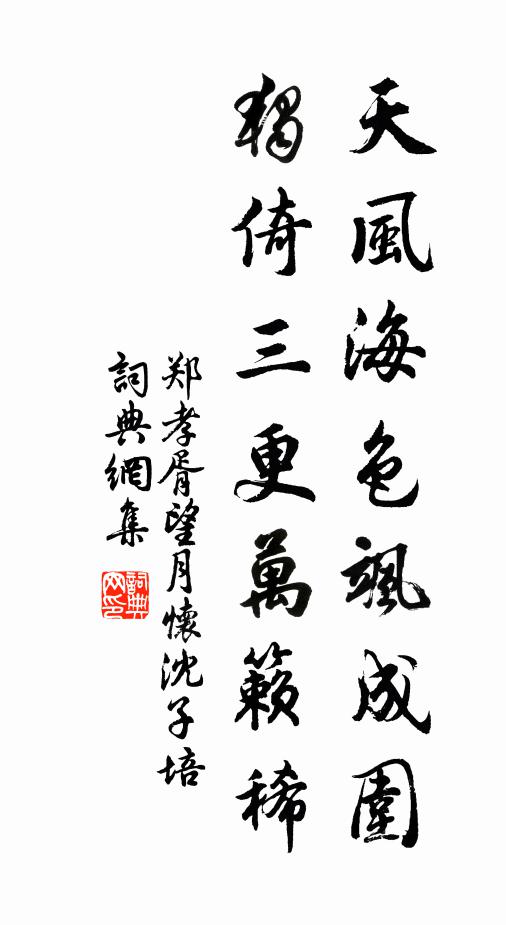 天風海色颯成圍
獨倚三更萬籟稀
郑孝胥望月懷沈子培
詞典網集
詞典网印